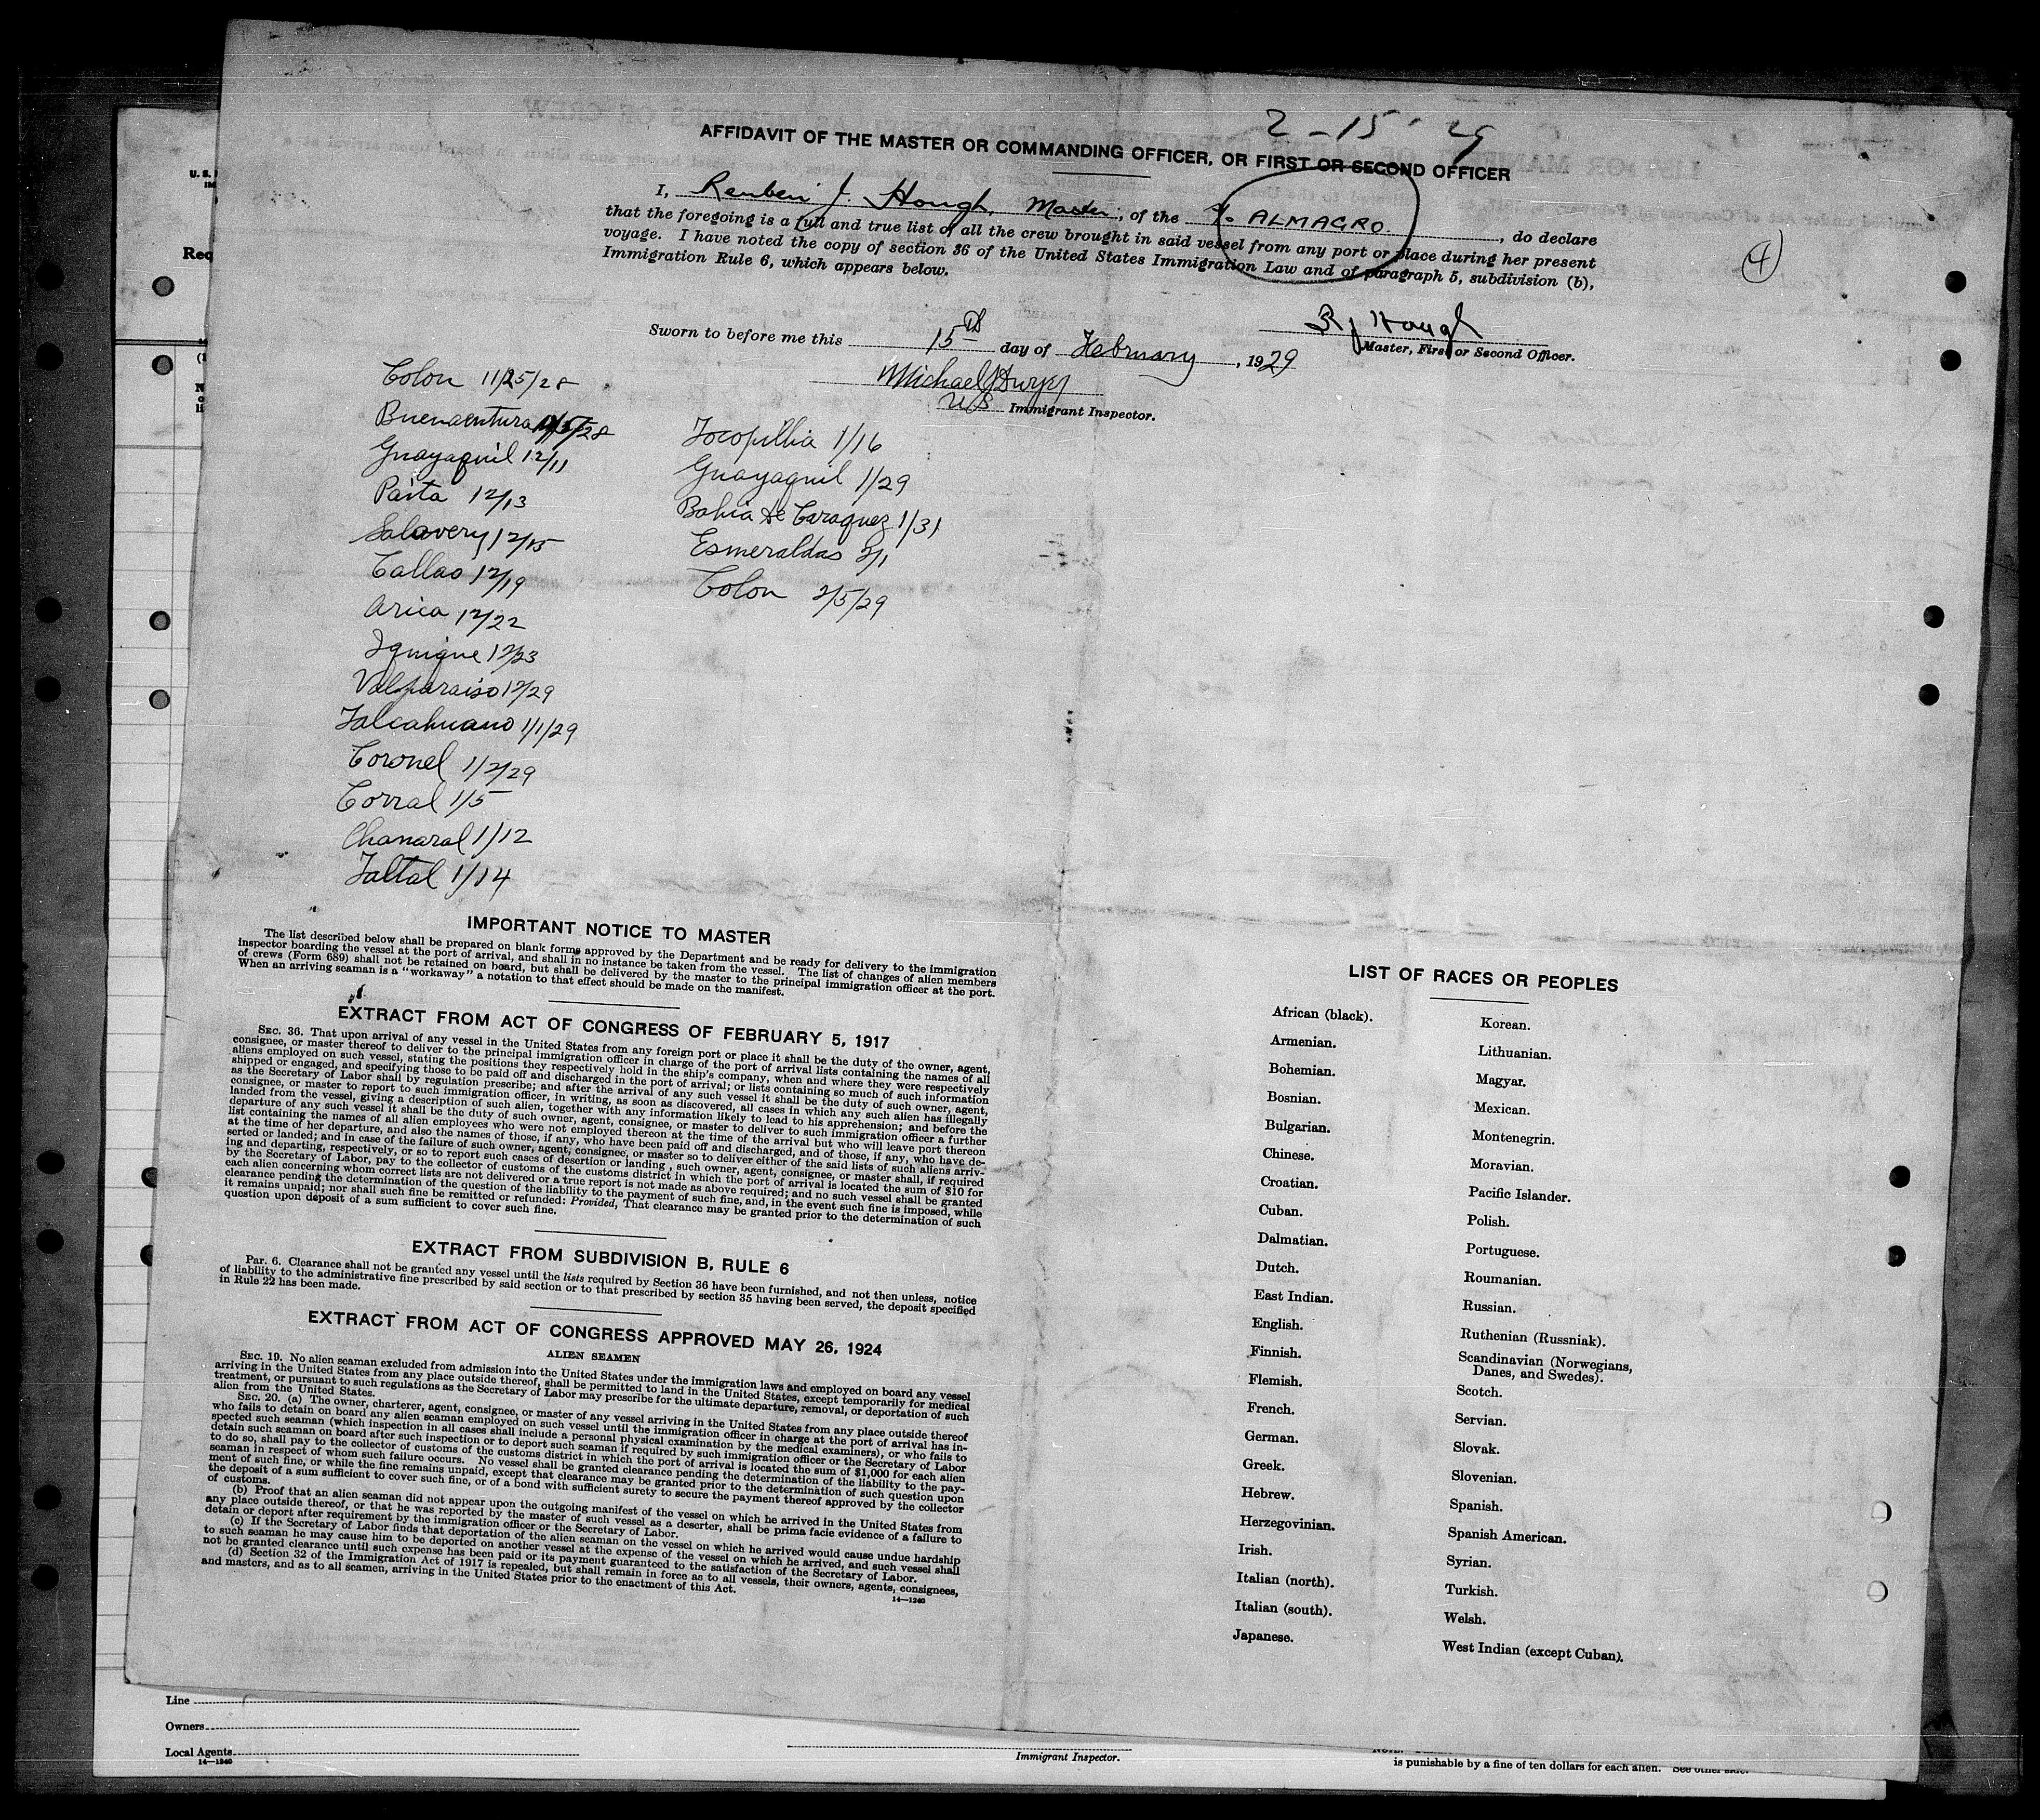 2 - 15 - 29
AFFIDAVIT OF THE MASTER OR COMMANDING OFFICER, OR FIRST OR SECOND OFFICER
I, Reuben J. Hough, Master, of the ALMAGRO., do declare
that the foregoing is a full and true list of all the crew brought in said vessel from any port or place during her present
voyage. I have noted the copy of section 36 of the United States Immigration Law and of paragraph 5, subdivision (b),
Immigration Rule 6, which appears below.
4
R J Hough
Master, First or Second Officer.
Sworn to before me this 15th day of February, 1929
Michael J Dwyer
US Immigrant Inspector.
Colon 11/25/28
Buenaentura 28
Guayaquil 12/11
Paita 12/13
Salavery 12/15
Callao 12/19
Arica 12/22
Iquique 12/23
Valparaiso 12/29
Talcahuano 1/1/29
Coronel 1/2/29
Corral 1/5
Chanaral 1/12
Taltal 1/14
Tocopillia 1/16
Guayaquil 1/29
Bahia de Caraquez 1/31
Esmeraldas 2/1
Colon 2/5/29
IMPORTANT NOTICE TO MASTER
The list described below shall be prepared on blank forms approved by the Department and be ready for delivery to the immigration
inspector boarding the vessel at the port of arrival, and shall in no instance be taken from the vessel. The list of changes of alien members
of crews (Form 689) shall not be retained on board, but shall be delivered by the master to the principal immigration officer at the port.
When an arriving seaman is a "workaway" a notation to that effect should be made on the manifest.
EXTRACT FROM ACT OF CONGRESS OF FEBRUARY 5, 1917
SEC. 36. That upon arrival of any vessel in the United States from any foreign port or place it shall be the duty of the owner, agent,
consignee, or master thereof to deliver to the principal immigration officer in charge of the port of arrival lists containing the names of all
aliens employed on such vessel, stating the positions they respectively hold in the ship's company, when and where they were respectively
shipped or engaged, and specifying those to be paid off and discharged in the port of arrival; or lists containing so much of such information
as the Secretary of Labor shall by regulation prescribe; and after the arrival of any such vessel it shall be the duty of such owner, agent,
consignee, or master to report to such immigration officer, in writing, as soon as discovered, all cases in which any such alien has illegally
landed from the vessel, giving a description of such alien, together with any information likely to lead to his apprehension; and before the
departure of any such vessel it shall be the duty of such owner, agent, consignee, or master to deliver to such immigration officer a further
list containing the names of all alien employees who were not employed thereon at the time of the arrival but who will leave port thereon
at the time of her departure, and also the names of those, if any, who have been paid off and discharged, and of those, if any, who have de-
serted or landed; and in case of the failure of such owner, agent, consignee, or master so to deliver either of the said lists of such aliens arriv-
ing and departing, respectively, or so to report such cases of desertion or landing, such owner, agent, consignee, or master shall, if required
by the Secretary of Labor, pay to the collector of customs of the customs district in which the port of arrival is located the sum of $10 for
each alien concerning whom correct lists are not delivered or a true report is not made as above required; and no such vessel shall be granted
clearance pending the determination of the question of the liability to the payment of such fine, and, in the event such fine is imposed, while
it remains unpaid; nor shall such fine be remitted or refunded: Provided, That clearance may be granted prior to the determination of such
question upon deposit of a sum sufficient to cover such fine.
EXTRACT FROM SUBDIVISION B, RULE 6
Par. 6. Clearance shall not be granted any vessel until the lists required by Section 36 have been furnished, and not then unless, notice
of liability to the administrative fine prescribed by said section or to that prescribed by section 35 having been served, the deposit specified
in Rule 22 has been made.
EXTRACT FROM ACT OF CONGRESS APPROVED MAY 26, 1924
ALIEN SEAMEN
SEC. 19. No alien seaman excluded from admission into the United States under the immigration laws and employed on board any vessel
arriving in the United States from any place outside thereof, shall be permitted to land in the United States, except temporarily for medical
treatment, or pursuant to such regulations as the Secretary of Labor may prescribe for the ultimate departure, removal, or deportation of such
alien from the United States.
SEC. 20. (a) The owner, charterer, agent, consignee, or master of any vessel arriving in the United States from any place outside thereof
who fails to detain on board any alien seaman employed on such vessel until the immigration officer in charge at the port of arrival has in-
spected such seaman (which inspection in all cases shall include a personal physical examination by the medical examiners), or who fails to
detain such seaman on board after such inspection or to deport such seaman if required by such immigration officer or the Secretary of Labor
to do so, shall pay to the collector of customs of the customs district in which the port of arrival is located the sum of $1,000 for each alien
seaman in respect of whom such failure occurs. No vessel shall be granted clearance pending the determination of the liability to the pay-
ment of such fine, or while the fine remains unpaid, except that clearance may be granted prior to the determination of such question upon
the deposit of a sum sufficient to cover such fine, or of a bond with sufficient surety to secure the payment thereof approved by the collector
of customs.
(b) Proof that an alien seaman did not appear upon the outgoing manifest of the vessel on which he arrived in the United States from
any place outside thereof, or that he was reported by the master of such vessel as a deserter, shall be prima facie evidence of a failure to
detain or deport after requirement by the immigration officer or the Secretary of Labor.
(c) If the Secretary of Labor finds that deportation of the alien seaman on the vessel on which he arrived would cause undue hardship
to such seaman he may cause him to be deported on another vessel at the expense of the vessel on which he arrived, and such vessel shall
not be granted clearance until such expense has been paid or its payment guaranteed to the satisfaction of the Secretary of Labor.
(d) Section 32 of the Immigration Act of 1917 is repealed, but shall remain in force as to all vessels, their owners, agents, consignees,
and masters, and as to all seamen, arriving in the United States prior to the enactment of this Act.
14—1240
LIST OF RACES OR PEOPLES
African (black).
Armenian.
Bohemian.
Bosnian.
Bulgarian.
Chinese.
Croatian.
Cuban.
Dalmatian.
Dutch.
East Indian.
English.
Finnish.
Flemish.
French.
German.
Greek.
Hebrew.
Herzegovinian.
Irish.
Italian (north).
Italian (south).
Japanese.
Korean.
Lithuanian.
Magyar.
Mexican.
Montenegrin.
Moravian.
Pacific Islander.
Polish.
Portuguese.
Roumanian.
Russian.
Ruthenian (Russniak).
Scandinavian (Norwegians,
Danes, and Swedes).
Scotch.
Servian.
Slovak.
Slovenian.
Spanish.
Spanish American.
Syrian.
Turkish.
Welsh.
West Indian (except Cuban).
Line
Owners
Local Agents
14—1240
Immigrant Inspector.
is punishable by a fine of ten dollars for each alien. See other side.